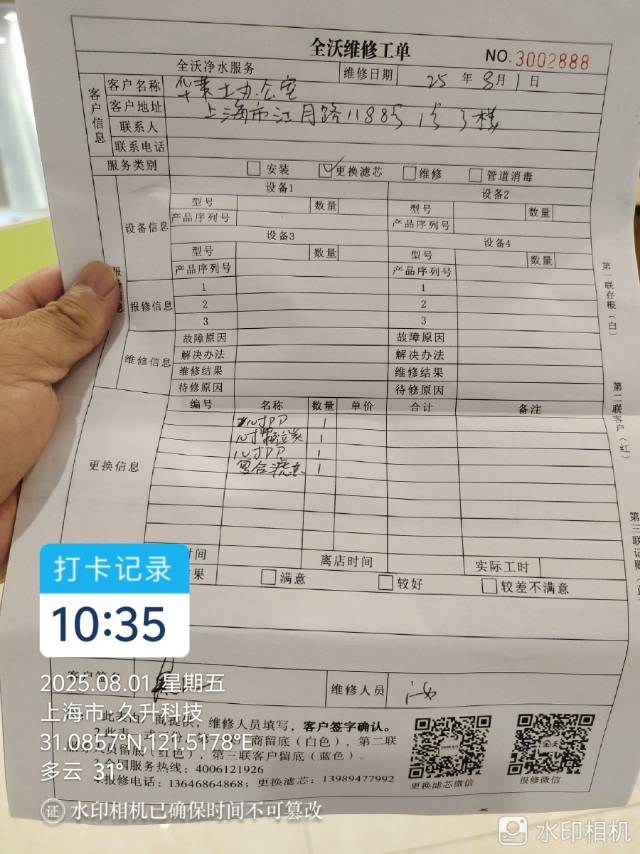 全沃维修工单
NO:3002888
全沃净水服务 维修日期 25 年 8 月 1 日
客户信息
客户名称 办公室
客户地址 上海市江月路1188弄 1号3楼
联系人
联系电话
服务类别 安装 ✓更换滤芯 维修 管道消毒
设备信息
设备1 设备2
型号 数量 型号 数量
产品序列号 产品序列号
设备3 设备4
型号 数量 型号 数量
产品序列号 产品序列号
报修信息
1 1
2 2
3 3
维修信息
故障原因 故障原因
解决办法 解决办法
维修结果 维修结果
待修原因 待修原因
更换信息
编号 名称 数量 单价 合计 备注
PP 1
1
PP 1
复合 1
时间 离店时间 实际工时
果 满意 较好 较差不满意
维修人员
维修人员填写,客户签字确认。
商留底(白色),第二联
留底 色),第三联客户留底(蓝色)。
服务热线:4006121926
报修电话:13646864868;更换滤芯:13989477992
更换滤芯微信 报修微信
第一联存根(白)
第二联客户(红)
第三联记账
打卡记录
10:35
2025.08.01 星期五
上海市·久升科技
31.0857°N,121.5178°E
多云 31°
证 水印相机已确保时间不可篡改
水印相机